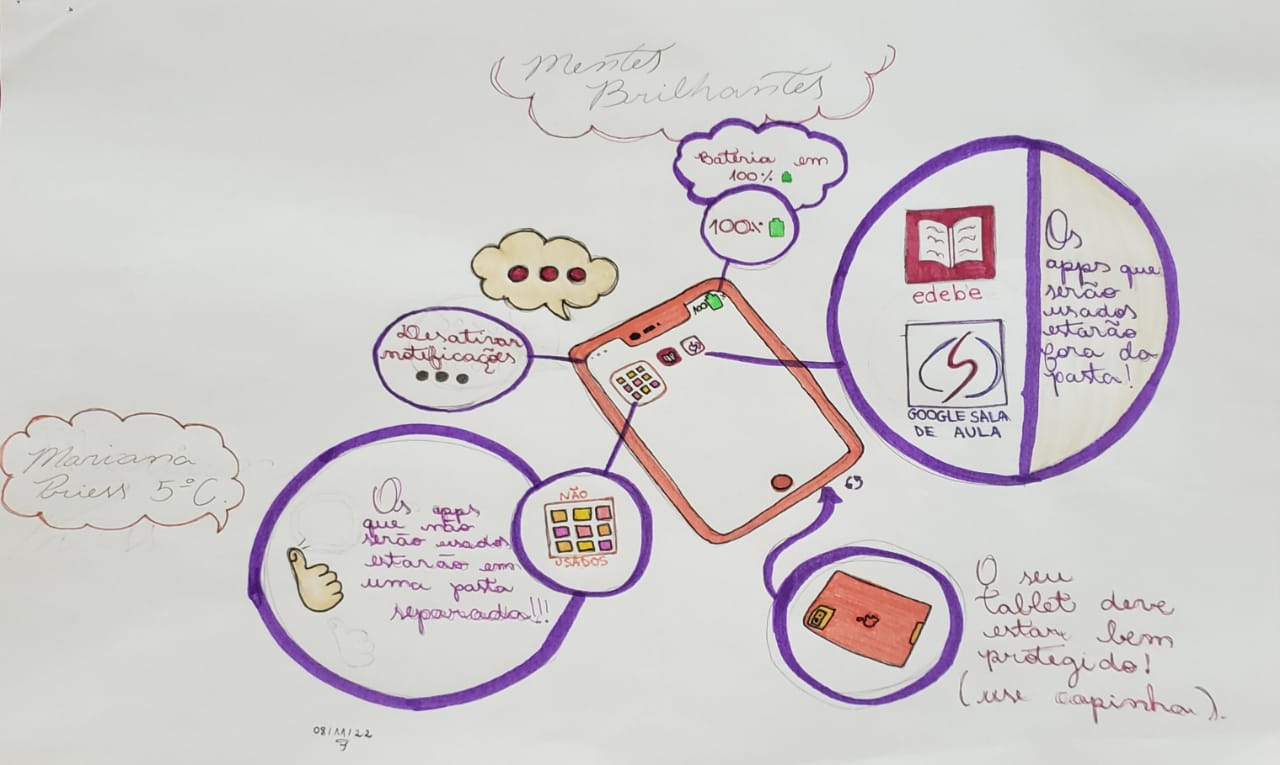 Mentes
Brilhantes
Bateria em
100%
100%
100%
Desativar
notificações
edebê
GOOGLE SALA
DE AULA
Os
apps que
serão
usados
estarão
fora da
pasta!
Mariana
Briess 5ºC.
Os apps
que não
serão usados
estarão em
uma pasta
separada!!!
NÃO
USADOS
O seu
tablet deve
estar bem
protegido!
(use capinha).
08/11/22